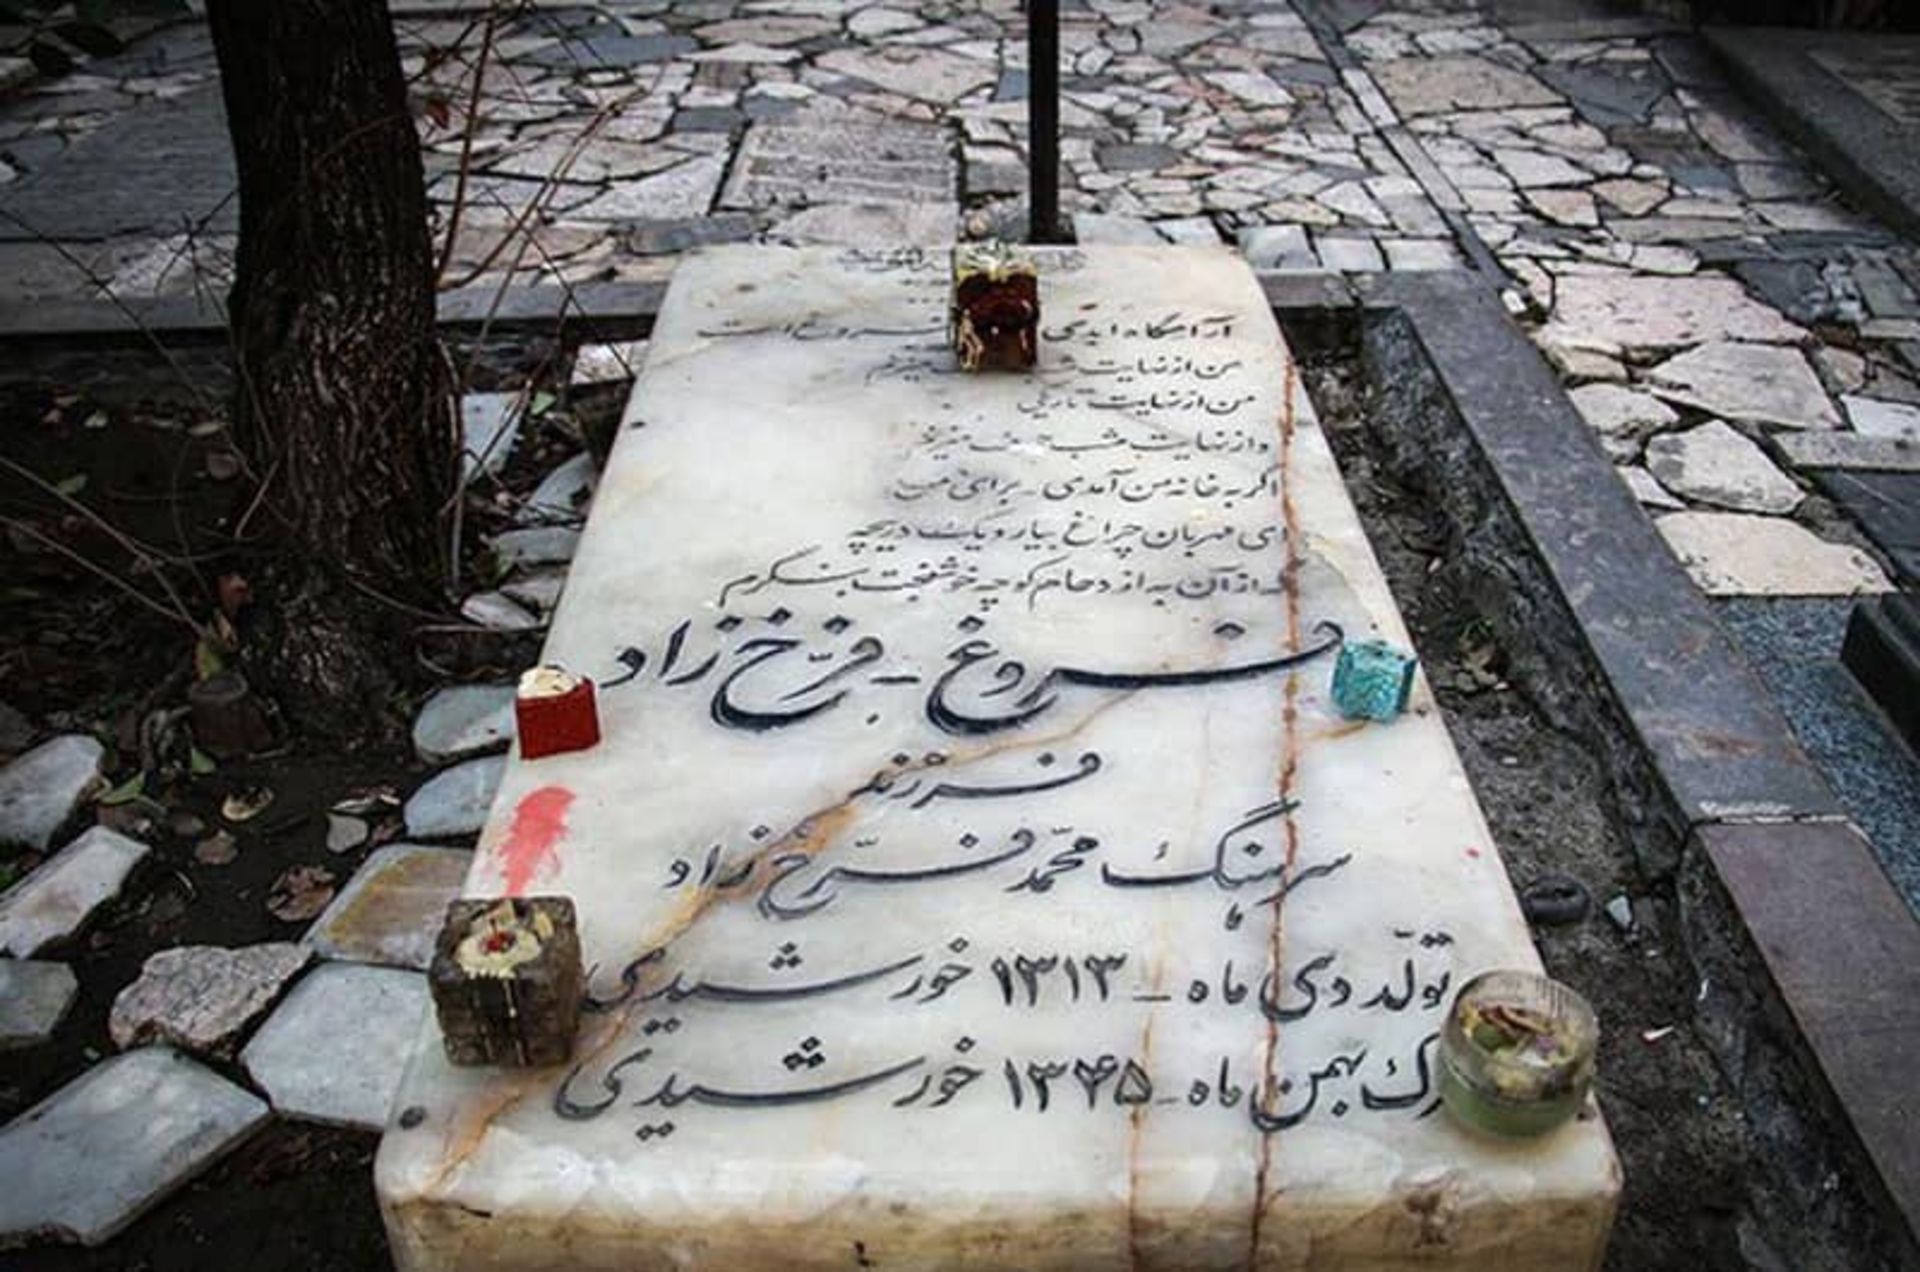 آرامگاه ابدی فروغ است
من از نهایت
من از نهایت تاریکی
و از نهایت شب حرف میزنم
اگر به خانه من آمدی - برای من
ای مهربان چراغ بیار و یک دریچه
که از آن به ازدحام کوچه خوشبخت بنگرم
فروغ - فرّخ زاد
فرزند
سرهنگ محمّد فرّخ زاد
تولّد دی ماه - ۱۳۱۳ خورشیدی
مرگ بهمن ماه - ۱۳۴۵ خورشیدی